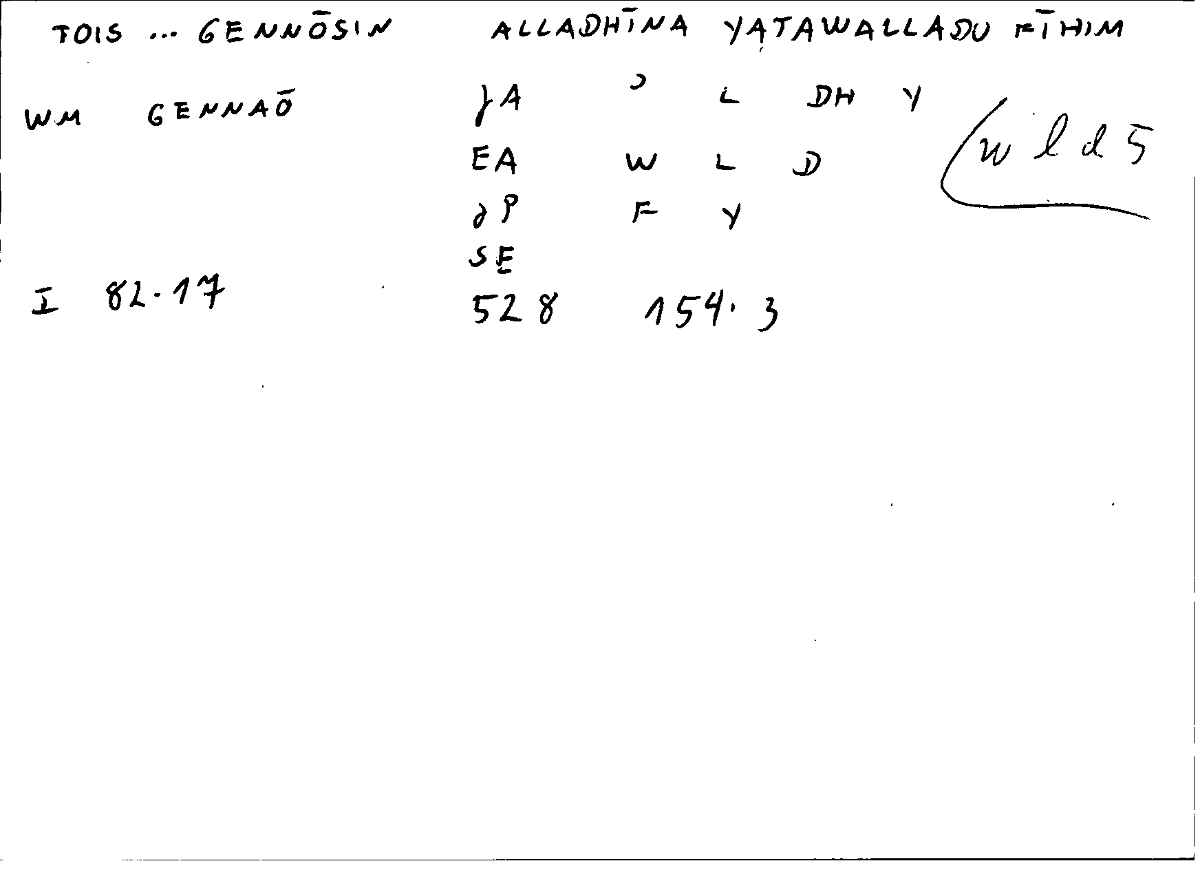 TOIS ... GENNŌSIN ALLADHĪNA YATAWALLADU FĪHIM
WM GENNAŌ JA ʾ L DH Y
wld5
EA W L D
JP F Y
SE
I 82.17 528 154.3